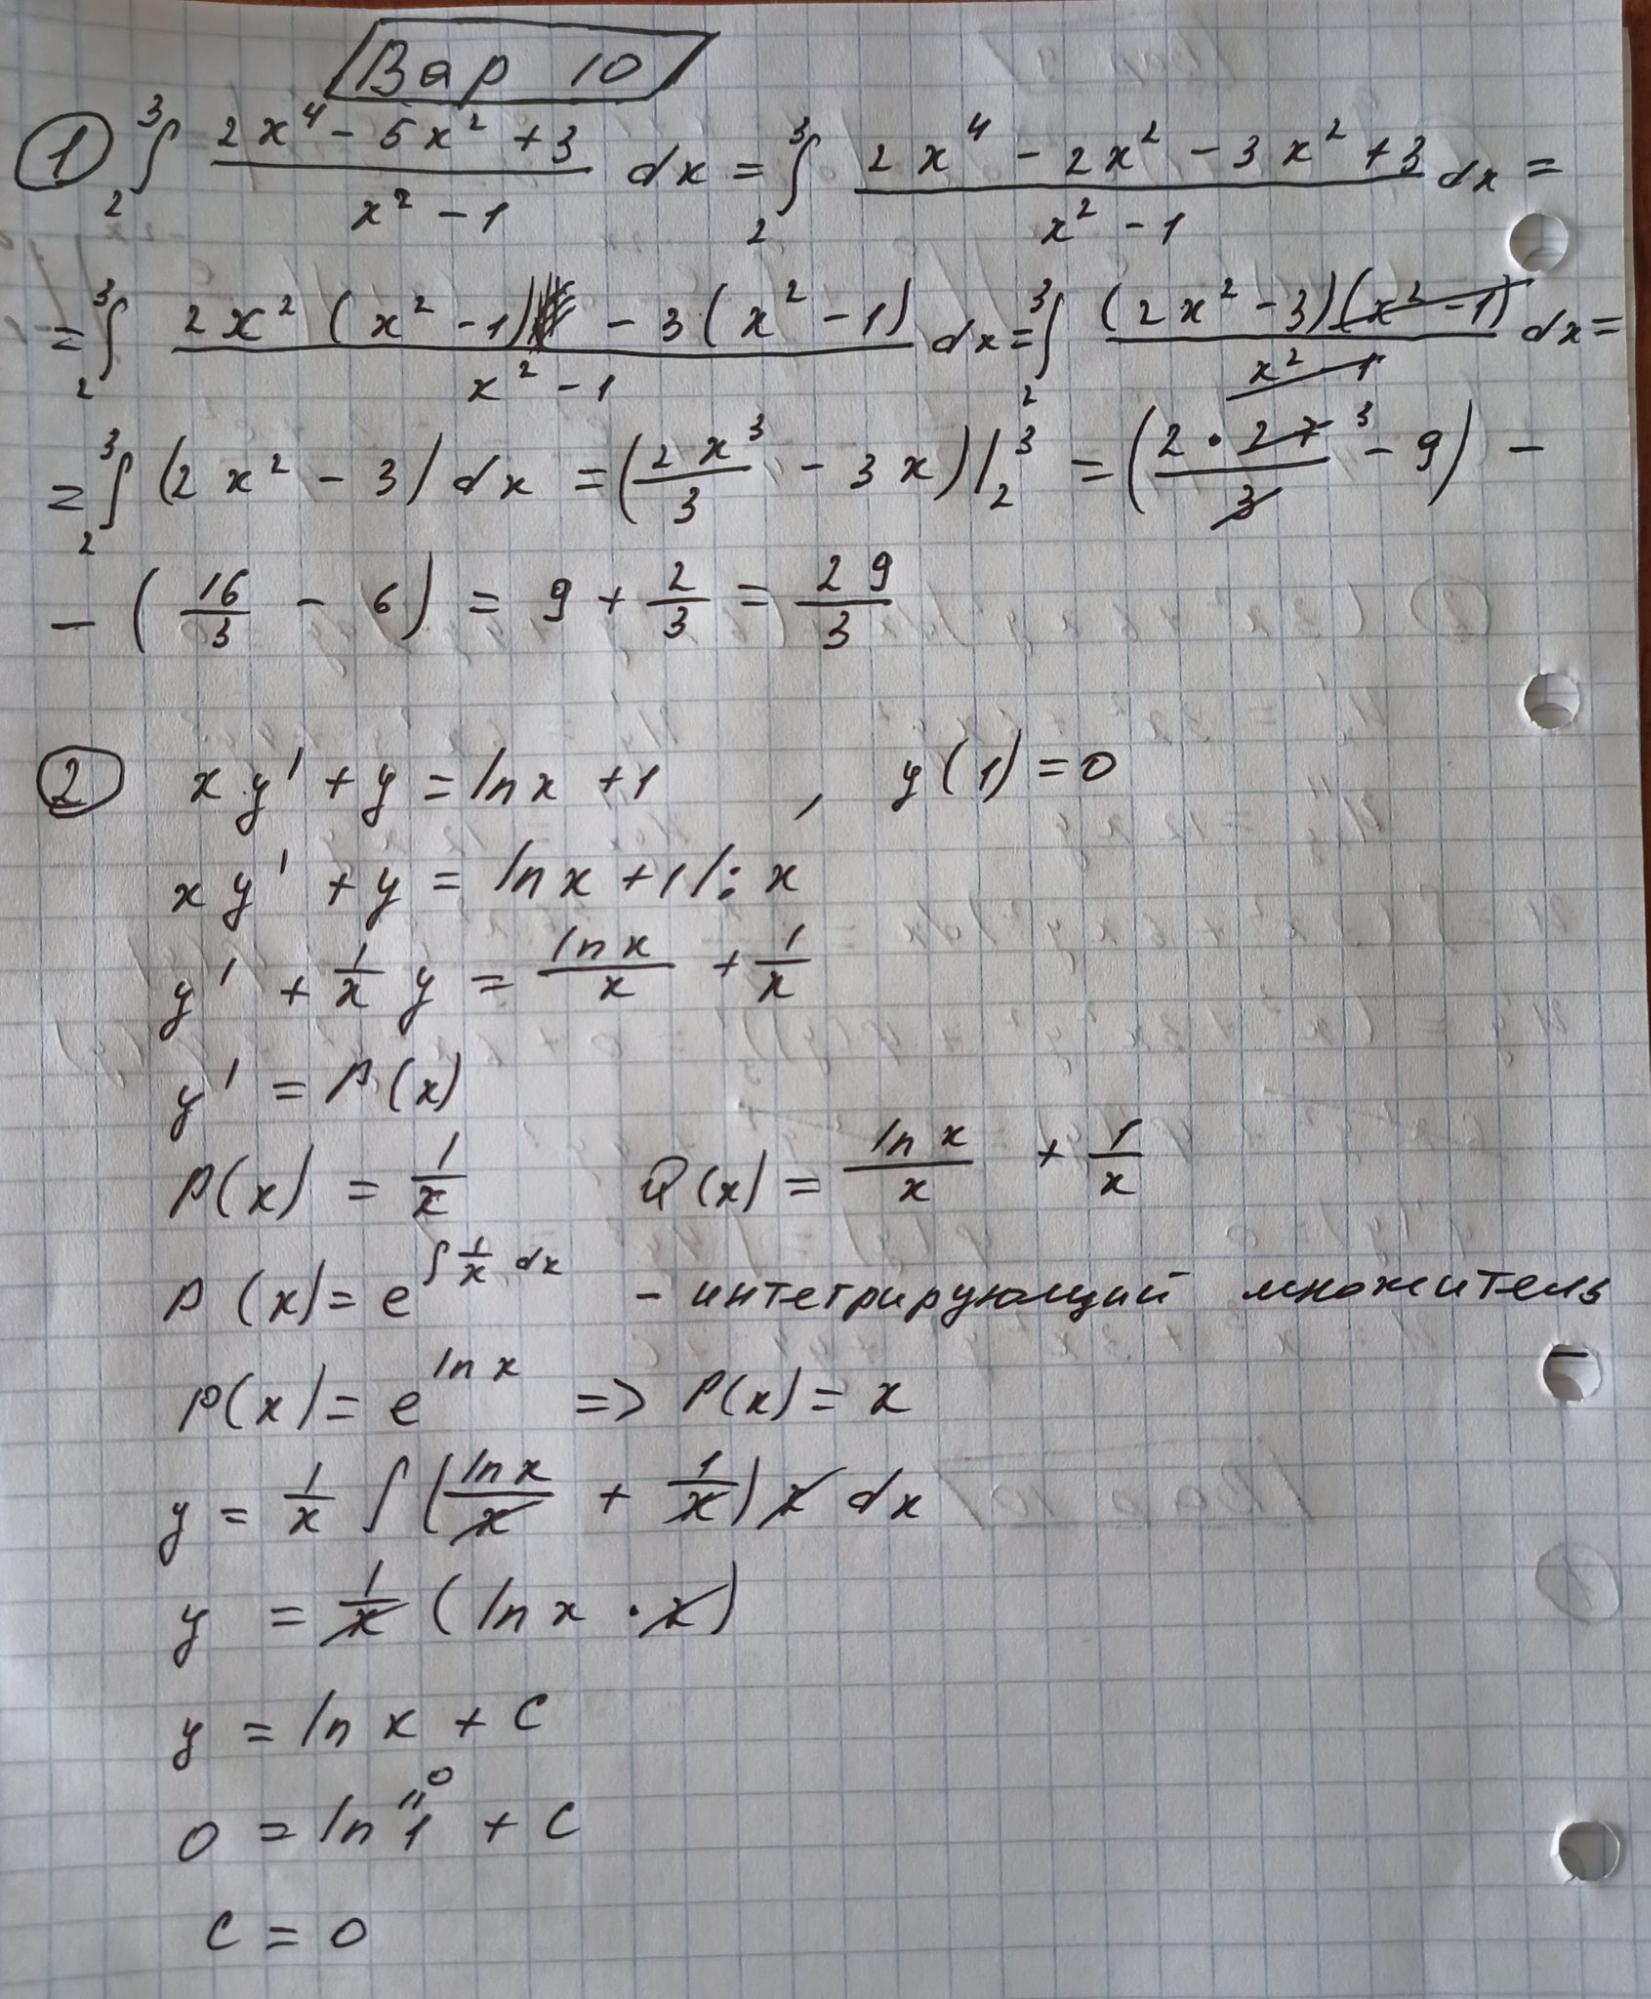 Вар 10
① ∫₂³ (2x⁴ - 5x² + 3)/(x² - 1) dx = ∫₂³ (2x⁴ - 2x² - 3x² + 3)/(x² - 1) dx =
= ∫₂³ (2x² (x² - 1) - 3(x² - 1))/(x² - 1) dx = ∫₂³ ((2x² - 3)(x² - 1))/(x² - 1) dx =
= ∫₂³ (2x² - 3) dx = (2x³/3 - 3x)|₂³ = (2 · 27³/3 - 9) -
- (16/3 - 6) = 9 + 2/3 = 29/3
② xy' + y = ln x + 1 , y(1) = 0
xy' + y = ln x + 1 /: x
y' + 1/x y = ln x/x + 1/x
y' = P(x)
P(x) = 1/x Q(x) = ln x/x + 1/x
P(x) = e^(∫ 1/x dx) - интегрирующий множитель
P(x) = e^(ln x) => P(x) = x
y = 1/x ∫ (ln x/x + 1/x) x dx
y = 1/x (ln x · x)
y = ln x + C
0 = ln 1 " 0 + C
C = 0